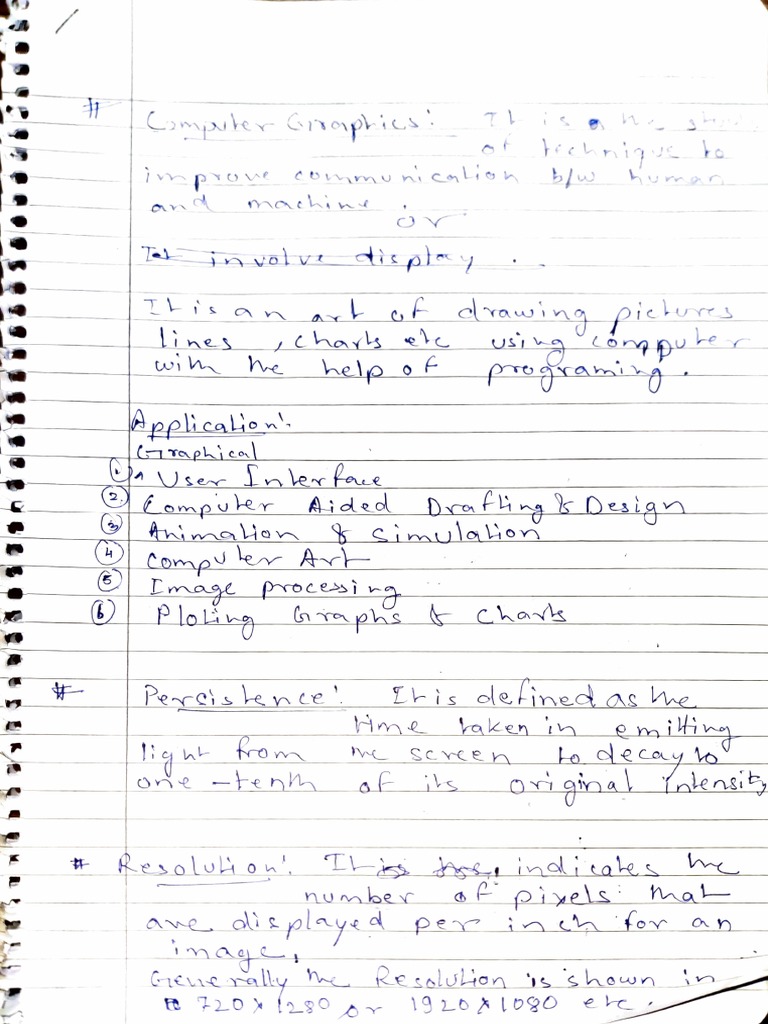 # Computer Graphics: It is a the
of technique to
improve communication b/w human
and machine.
or
It involve display ..
It is an art of drawing pictures
lines, charts etc using computer
with the help of programing.
Application:
Graphical
1. ^ User Interface
2. Computer Aided Drafting & Design
3 Animation & Simulation
4 Computer Art
5 Image processing
6 Ploting Graphs & Charts
# Persistence: It is defined as the
time taken in emitting
light from the screen to decay to
one-tenth of its original intensity
# Resolution: It indicates the
number of pixels that
are displayed per inch for an
image.
Generally the Resolution is shown in
720 x 1280 or 1920 x 1080 etc.